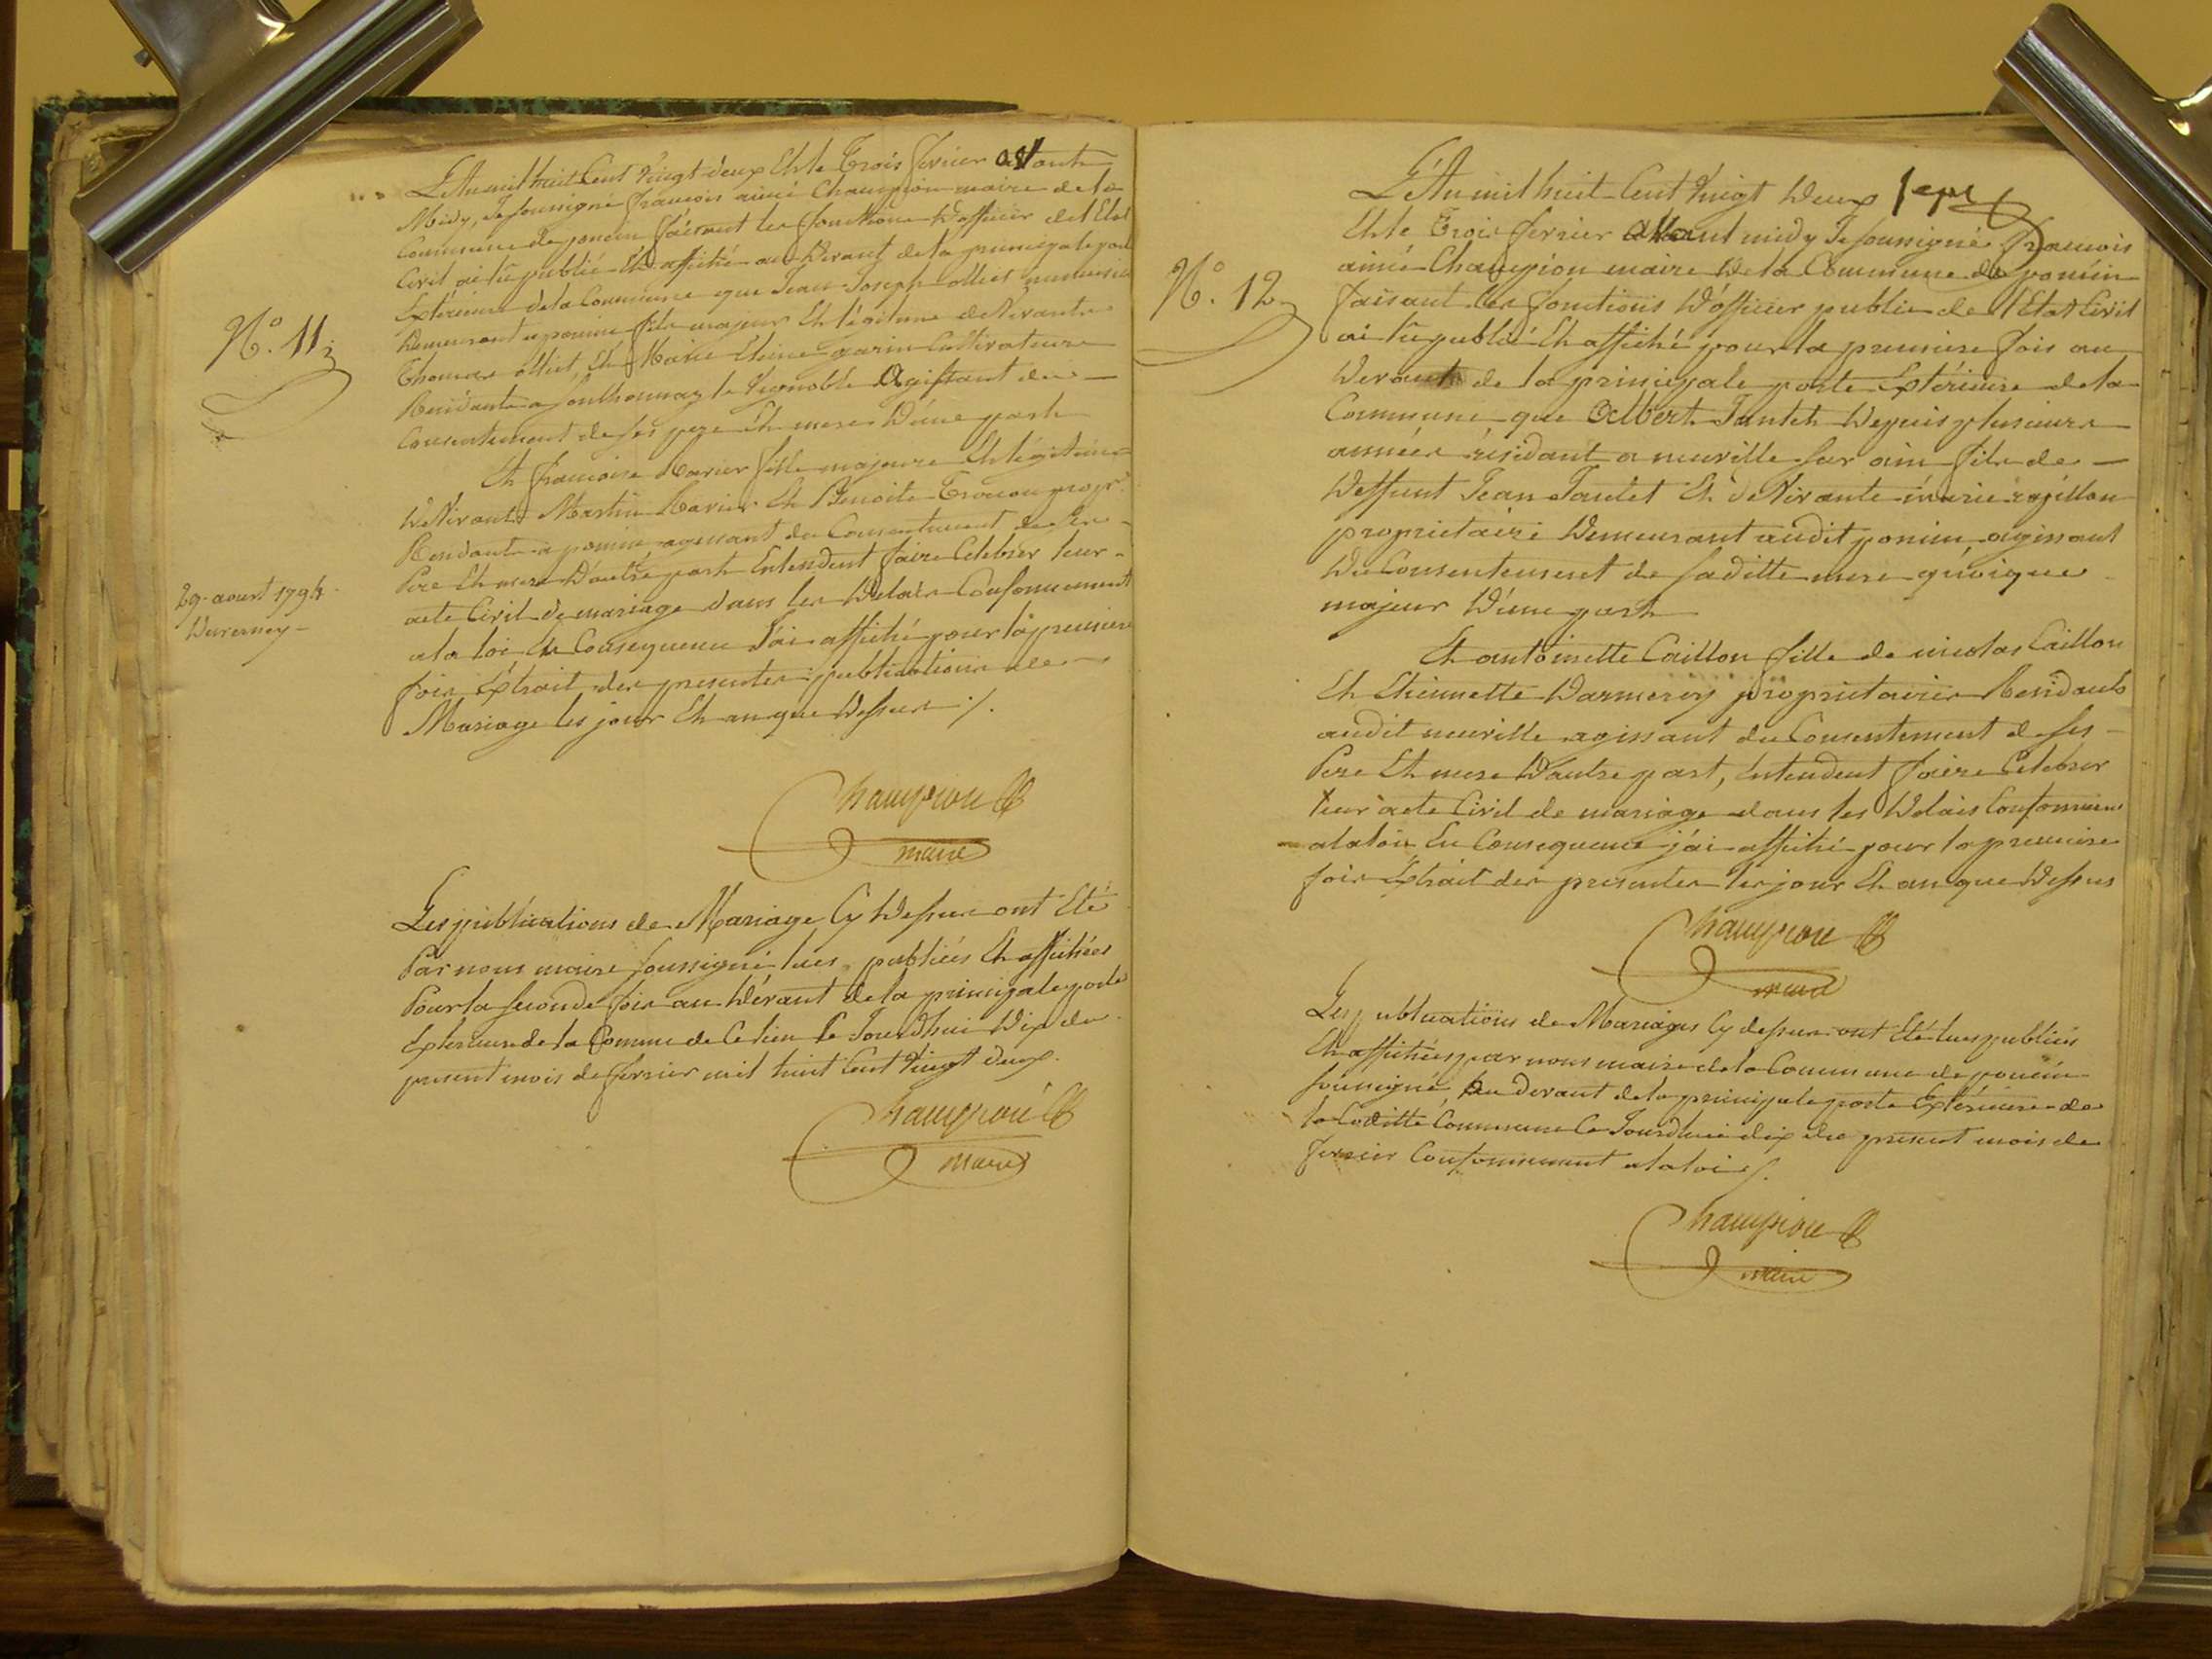 L'An mil huit Cent Vingt deux Et le Trois fevrier avant
Midy, Je soussigné françois aimé Champion maire de la
Commune de poncin faisant les fonctions d'officier de l'Etat
Civil ai lû publié Et affiché au Devant de la principale porte
Extérieure de la Commune que Jean Joseph olliet
Demeurant a poncin fils majeur Et légitime de Vivants
Thomas olliet, Et Marie garin Cultivateurs
Residants a Southonnaz le Vignoble Agissant du
Consentement de ses pere Et mere D'une part
Et francoise Ravier fille majeure Et légitime
De Vivants Martin Ravier Et Benoite
Residants a poncin agissant du Consentement de ses
Pere Et mere D'autre part Entendent faire Celebrer leur
acte Civil de mariage dans les Delais Conformement
a la loi En Consequence J'ai affiché pour la premiere
fois Extrait des presentes publications de
Mariage les jour Et an que Dessus ./.
N.º 11
29. aoust 1794.
Champion
maire
Les publications de Mariage Cy Dessus ont Eté
Par nous maire soussigné lues, publiées Et affichées
Pour la seconde fois au Dévant de la principale porte
Exterieure de la Comune de Ce lieu Ce Jourdhui Dix du
present mois de fevrier mil huit Cent Vingt deux.
Champion
maire
N.º 12
L'An mil huit Cent Vingt Deux sept
Et le Trois fevrier avant midy Je soussigné françois
aimé Champion maire De la Commune de poncin
faisant les fonctions D'officier public de l'Etat Civil
ai lû publié Et affiché pour la premiere fois au
Devant de la principale porte Extérieure de la
Commune, que Albert Tantet Depuis plusieurs
années résidant a neuville sur ain fils de
Deffunt Jean Tantet Et de Vivante marie
proprietaire Demeurant audit poncin, agissant
Du Consentement de saditte mere quoique
majeur D'une part
Et antoinette Caillon fille de nicolas Caillon
Et Etiennette Darmerey proprietaires Residants
audit neuville agissant du Consentement de ses
Pere Et mere D'autre part, Entendent faire Celebrer
leur acte Civil de mariage dans les Delais Conformement
a la loi En Consequence j'ai affiché pour la premiere
fois Extrait des presentes les jour Et an que Dessus
Champion
maire
Les publications de Mariages Cy dessus ont Eté lues publiées
Et affichées par nous maire de la Commune de poncin
soussigné, au devant de la principale porte Extérieure de
la laditte Commune Ce Jourdhui dix du present mois de
fevrier Conformement a la loi ./.
Champion
maire